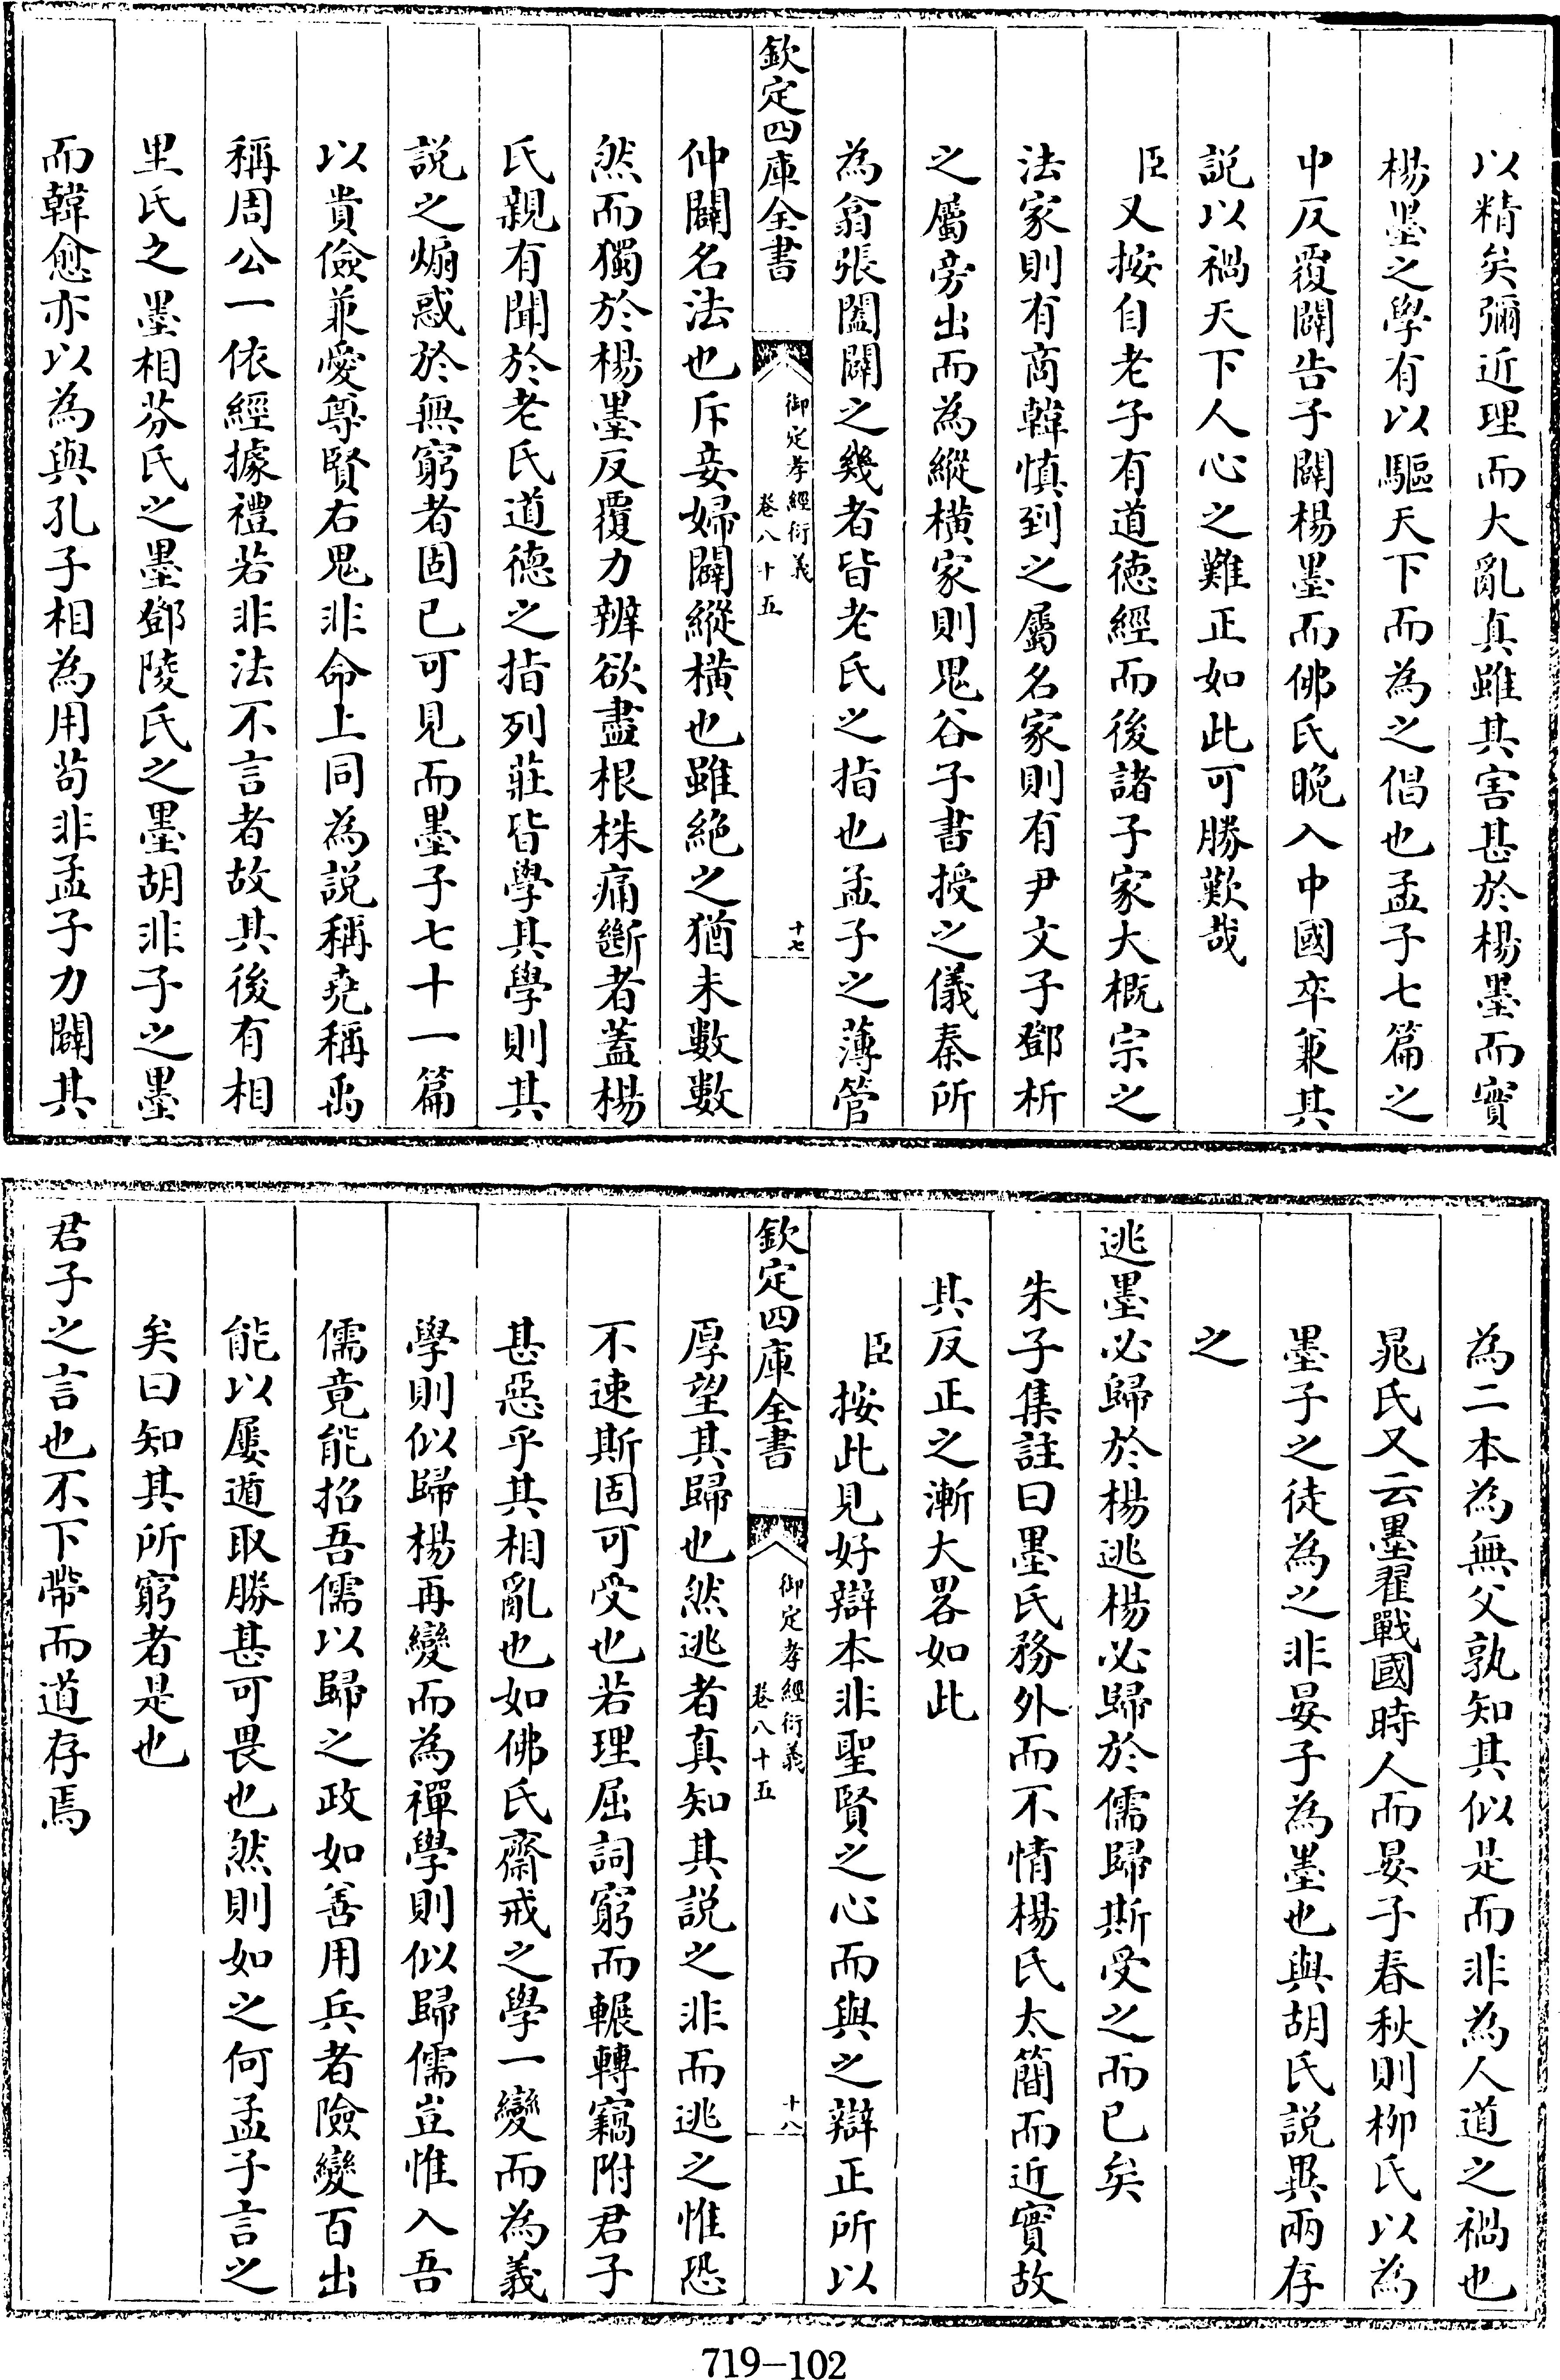 以精矣彌近理而大亂真雖其害甚於楊墨而實
楊墨之學有以驅天下而為之倡也孟子七篇之
中反覆闢告子闢楊墨而佛氏晚入中國卒兼其
説以禍天下人心之難正如此可勝歎哉
臣又按自老子有道徳經而後諸子家大概宗之
法家則有商韓慎到之屬名家則有尹文子鄧析
之屬旁出而為縱橫家則鬼谷子書授之儀秦所
為翕張闔闢之幾者皆老氏之指也孟子之薄管
欽定四庫全書
御定孝經衍義
卷八十五
十七
仲闢名法也斥妾婦闢縱橫也雖絶之猶未數數
然而獨於楊墨反覆力辨欲盡根株痛斷者蓋楊
氏親有聞於老氏道德之指列莊皆學其學則其
説之煽惑於無窮者固已可見而墨子七十一篇
以貴儉兼愛尊賢右鬼非命上同為説稱堯稱禹
稱周公一依經據禮若非法不言者故其後有相
里氏之墨相芬氏之墨鄧陵氏之墨胡非子之墨
而韓愈亦以為與孔子相為用茍非孟子力闢其
為二本為無父孰知其似是而非為人道之禍也
晁氏又云墨翟戰國時人而晏子春秋則柳氏以為
墨子之徒為之非晏子為墨也與胡氏説異兩存
之
逃墨必歸於楊逃楊必歸於儒歸斯受之而已矣
朱子集註曰墨氏務外而不情楊氏太簡而近實故
其反正之漸大畧如此
臣按此見好辯本非聖賢之心而與之辯正所以
欽定四庫全書
御定孝經衍義
卷八十五
十八
厚望其歸也然逃者真知其説之非而逃之惟恐
不速斯固可受也若理屈詞窮而輾轉竊附君子
甚惡乎其相亂也如佛氏齋戒之學一變而為義
學則似歸楊再變而為禪學則似歸儒豈惟入吾
儒竟能招吾儒以歸之政如善用兵者險變百出
能以屢遁取勝甚可畏也然則如之何孟子言之
矣曰知其所窮者是也
君子之言也不下帶而道存焉
719-102